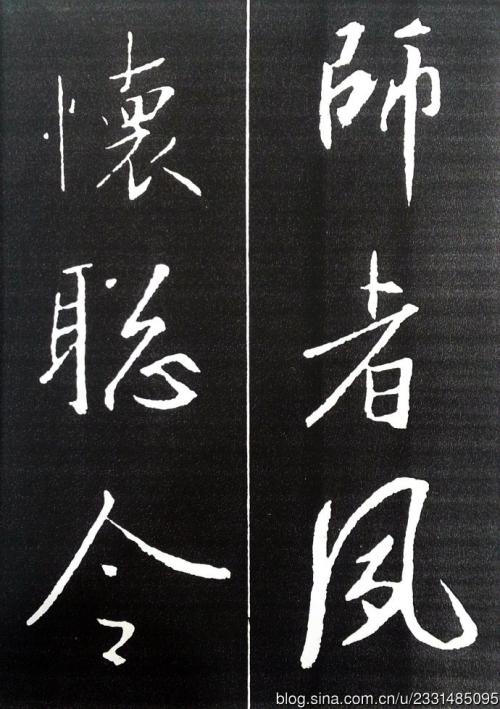 師者夙
懷聡令
blog.sina.com.cn/u/2331485095